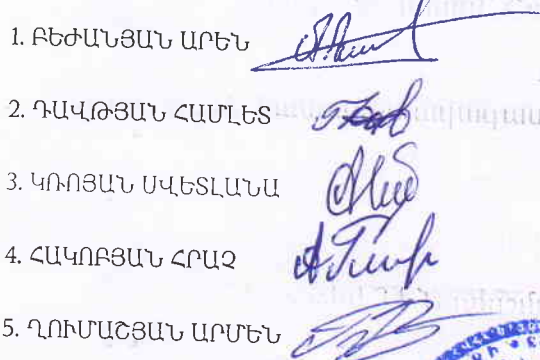 1. ԲԵԺԱՆՅԱՆ ԱՐԵՆ
2. ԴԱՎԹՅԱՆ ՀԱՄԼԵՏ
3. ԿՌՈՅԱՆ ՍՎԵՏԼԱՆԱ
4. ՀԱԿՈԲՅԱՆ ՀՐԱՉ
5. ՂՈՒՄԱՇՅԱՆ ԱՐՄԵՆ